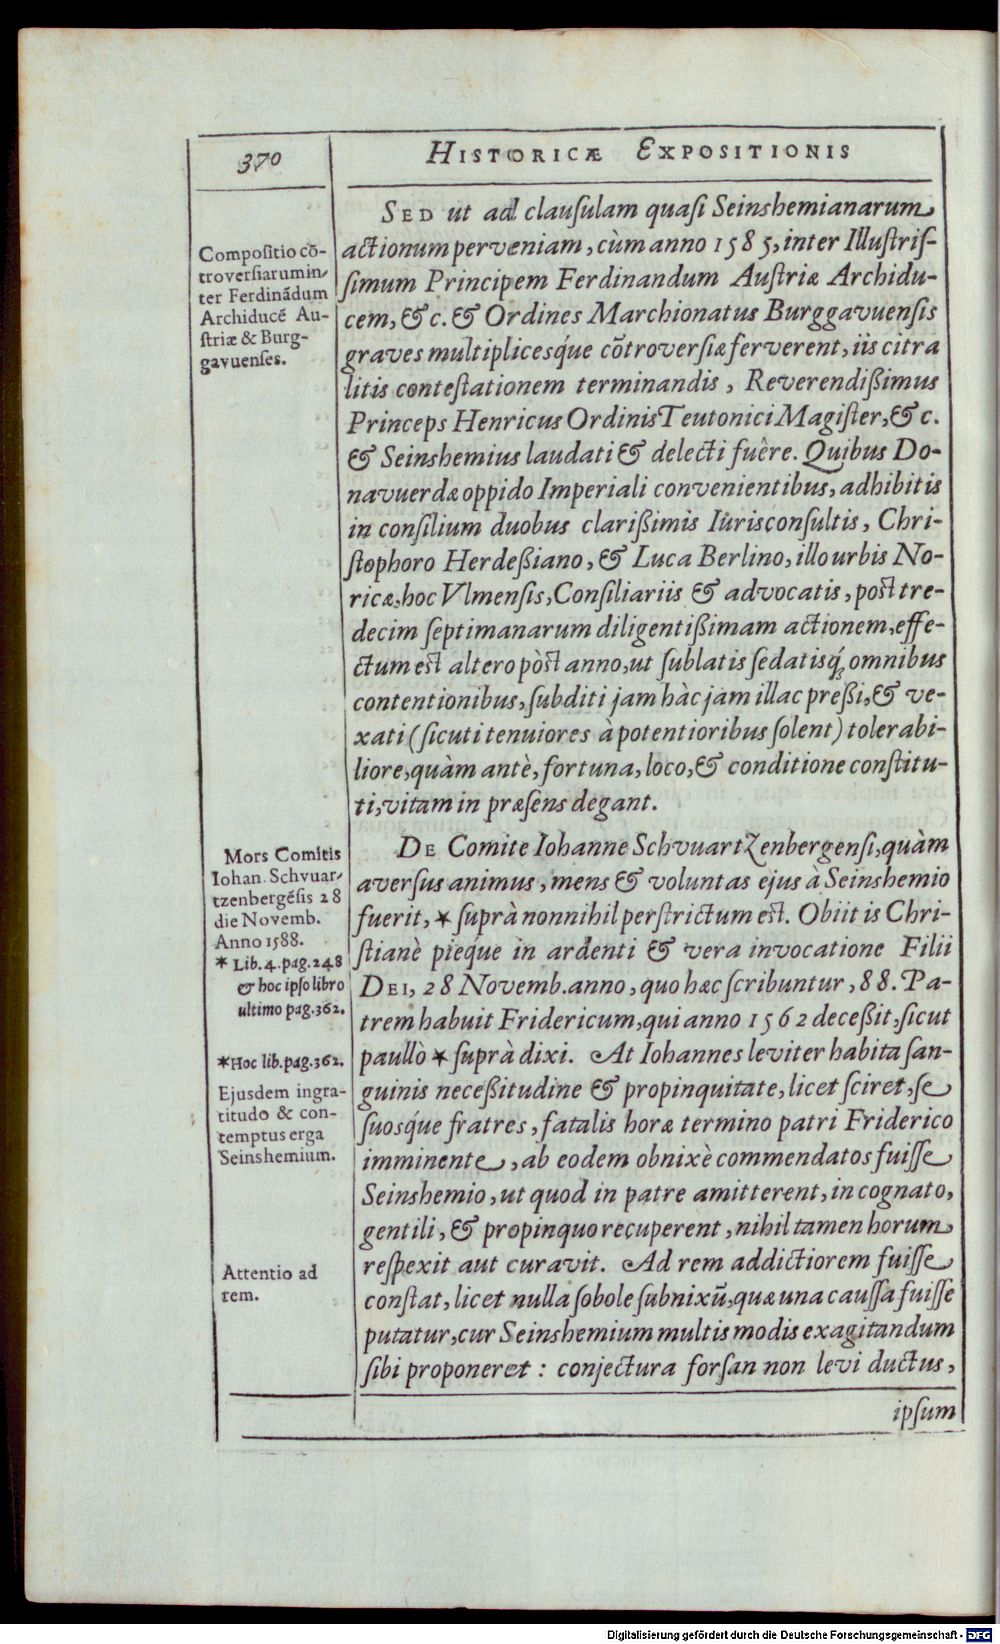 370
HISTORICÆ EXPOSITIONIS
SED ut ad clauſulam quaſi Seinshemianarum
actionum perveniam, cùm anno 1585, inter Illuſtriſ-
ſimum Principem Ferdinandum Auſtriæ Archidu-
cem, & c. & Ordines Marchionatus Burggavuenſis
graves multiplicesq́ue cõtroverſiæ ferverent, iis citra
litis conteſtationem terminandis, Reverendißimus
Princeps Henricus Ordinis Teutonici Magiſter, & c.
& Seinshemius laudati & delecti fuêre. Quibus Do-
navuerdæ oppido Imperiali convenientibus, adhibitis
in conſilium duobus clarißimis Iurisconſultis, Chri-
ſtophoro Herdeßiano, & Luca Berlino, illo urbis No-
ricæ, hoc Vlmenſis, Conſiliariis & advocatis, poſt tre-
decim ſeptimanarum diligentißimam actionem, effe-
ctum eſt altero pòſt anno, ut ſublatis ſedatisq́; omnibus
contentionibus, ſubditi jam hàc jam illac preßi, & ve-
xati (ſicuti tenuiores à potentioribus ſolent) tolerabi-
liore, quàm antè, fortuna, loco, & conditione conſtitu-
ti, vitam in præſens degant.
DE Comite Iohanne SchvuartZenbergenſi, quàm
averſus animus, mens & voluntas ejus à Seinshemio
fuerit, * ſuprà nonnihil perſtrictum eſt. Obiit is Chri-
ſtianè pieque in ardenti & vera invocatione Filii
DEI, 28 Novemb. anno, quo hæc ſcribuntur, 88. Pa-
trem habuit Fridericum, qui anno 1562 deceßit, ſicut
paullò * ſuprà dixi. At Iohannes leviter habita ſan-
guinis neceßitudine & propinquitate, licet ſciret, ſe
ſuosq́ue fratres, fatalis horæ termino patri Friderico
imminente, ab eodem obnixè commendatos fuiſſe
Seinshemio, ut quod in patre amitterent, in cognato,
gentili, & propinquo recuperent, nihil tamen horum
reſpexit aut curavit. Ad rem addictiorem fuiſſe
conſtat, licet nulla ſobole ſubnixũ, quæ una cauſſa fuiſſe
putatur, cur Seinshemium multis modis exagitandum
ſibi proponeret : conjectura forſan non levi ductus,
ipſum
Compoſitio cõ-
troverſiarum in-
ter Ferdinãdum
Archiducẽ Au-
ſtriæ & Burg-
gavuenſes.
Mors Comitis
Iohan. Schvuar-
tzenbergẽſis 28
die Novemb.
Anno 1588.
* Lib. 4. pag. 248
& hoc ipſo libro
ultimo pag. 362.
* Hoc lib. pag. 362.
Ejusdem ingra-
titudo & con-
temptus erga
Seinshemium.
Attentio ad
rem.
Digitalisierung gefördert durch die Deutsche Forschungsgemeinschaft - DFG